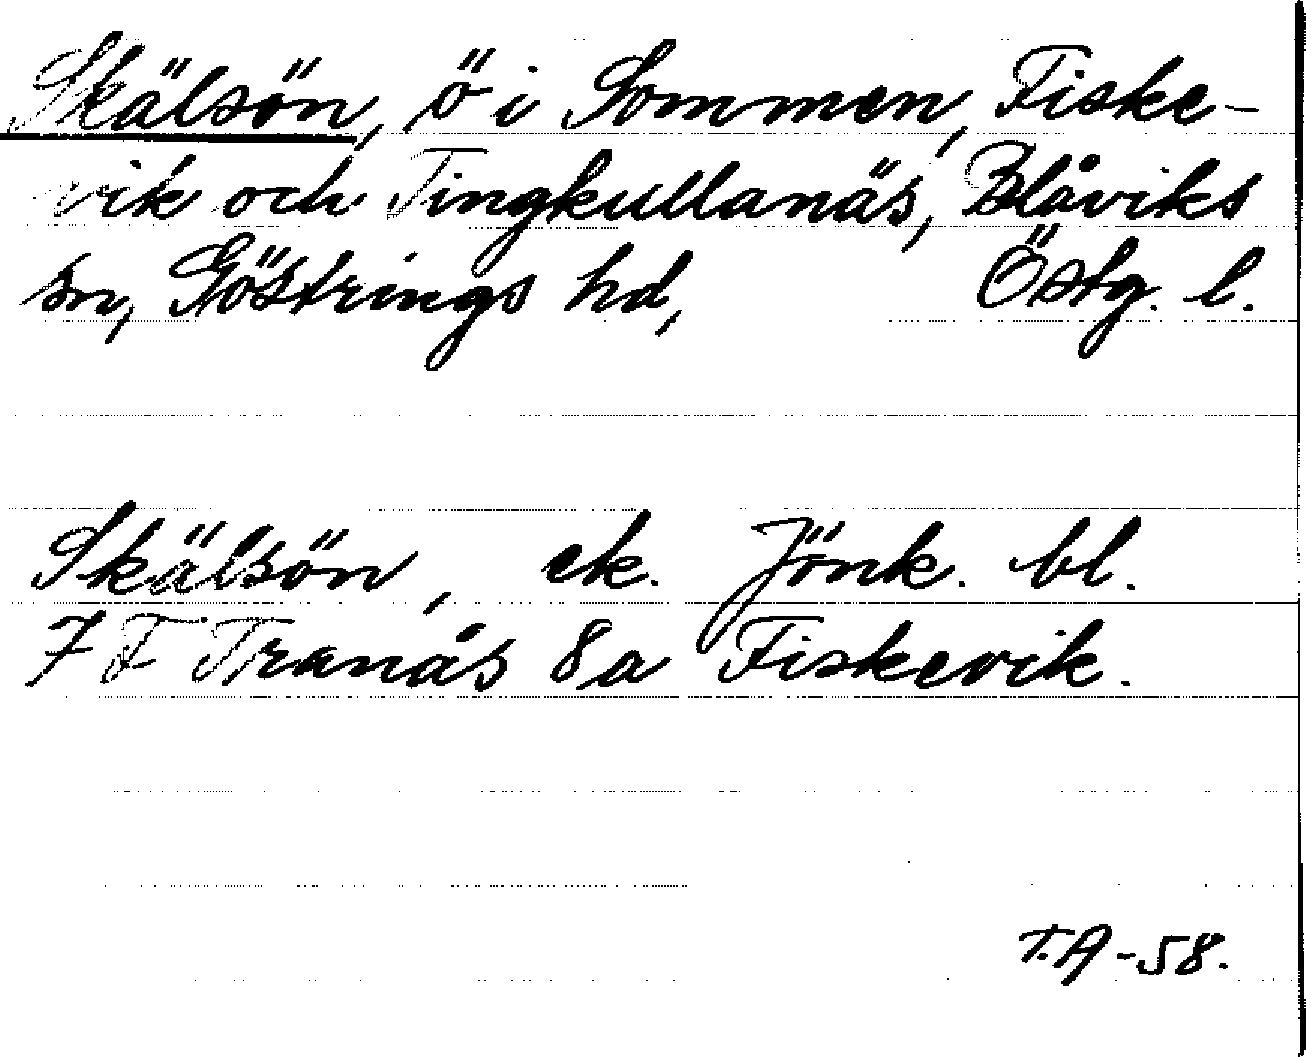 Skälsön, ö i Sommen, Fiske-
vik och Tingkullanäs, Blåviks
sn, Göstrings hd, Östg. l.
Skälsön, ek. Jönk. bl.
7 F Tranås 8a Fiskevik.
T.A -58.